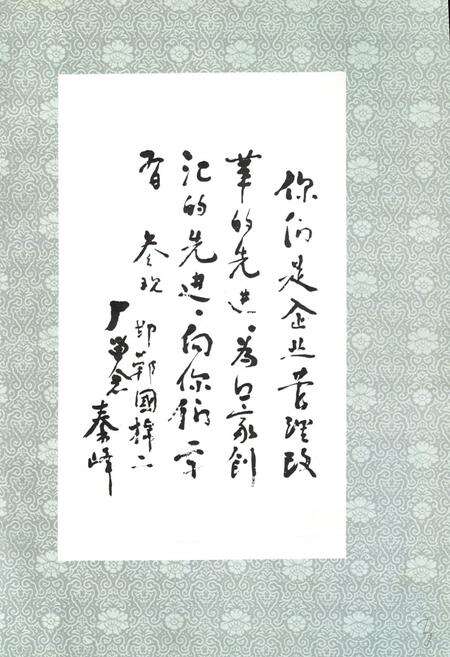 你们是企业管理改
革的先进，為国家创
汇的先进，向你们学
習 参观
邯郸國棉二
厂留念 秦峰